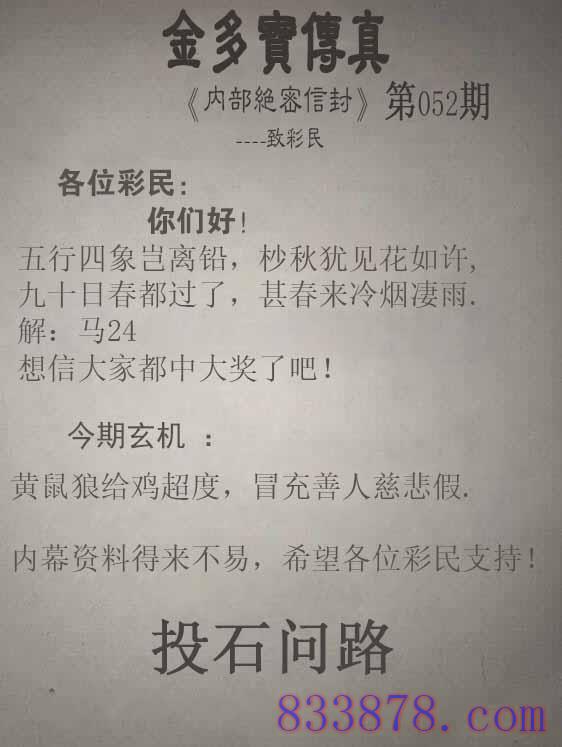 金多寶傳真
《内部絕密信封》第052期
----致彩民
各位彩民:
你们好!
五行四象岂离铅，杪秋犹见花如许,
九十日春都过了，甚春来冷烟凄雨.
解：马24
想信大家都中大奖了吧!
今期玄机 :
黄鼠狼给鸡超度，冒充善人慈悲假.
内幕资料得来不易，希望各位彩民支持!
投石问路
833878.com